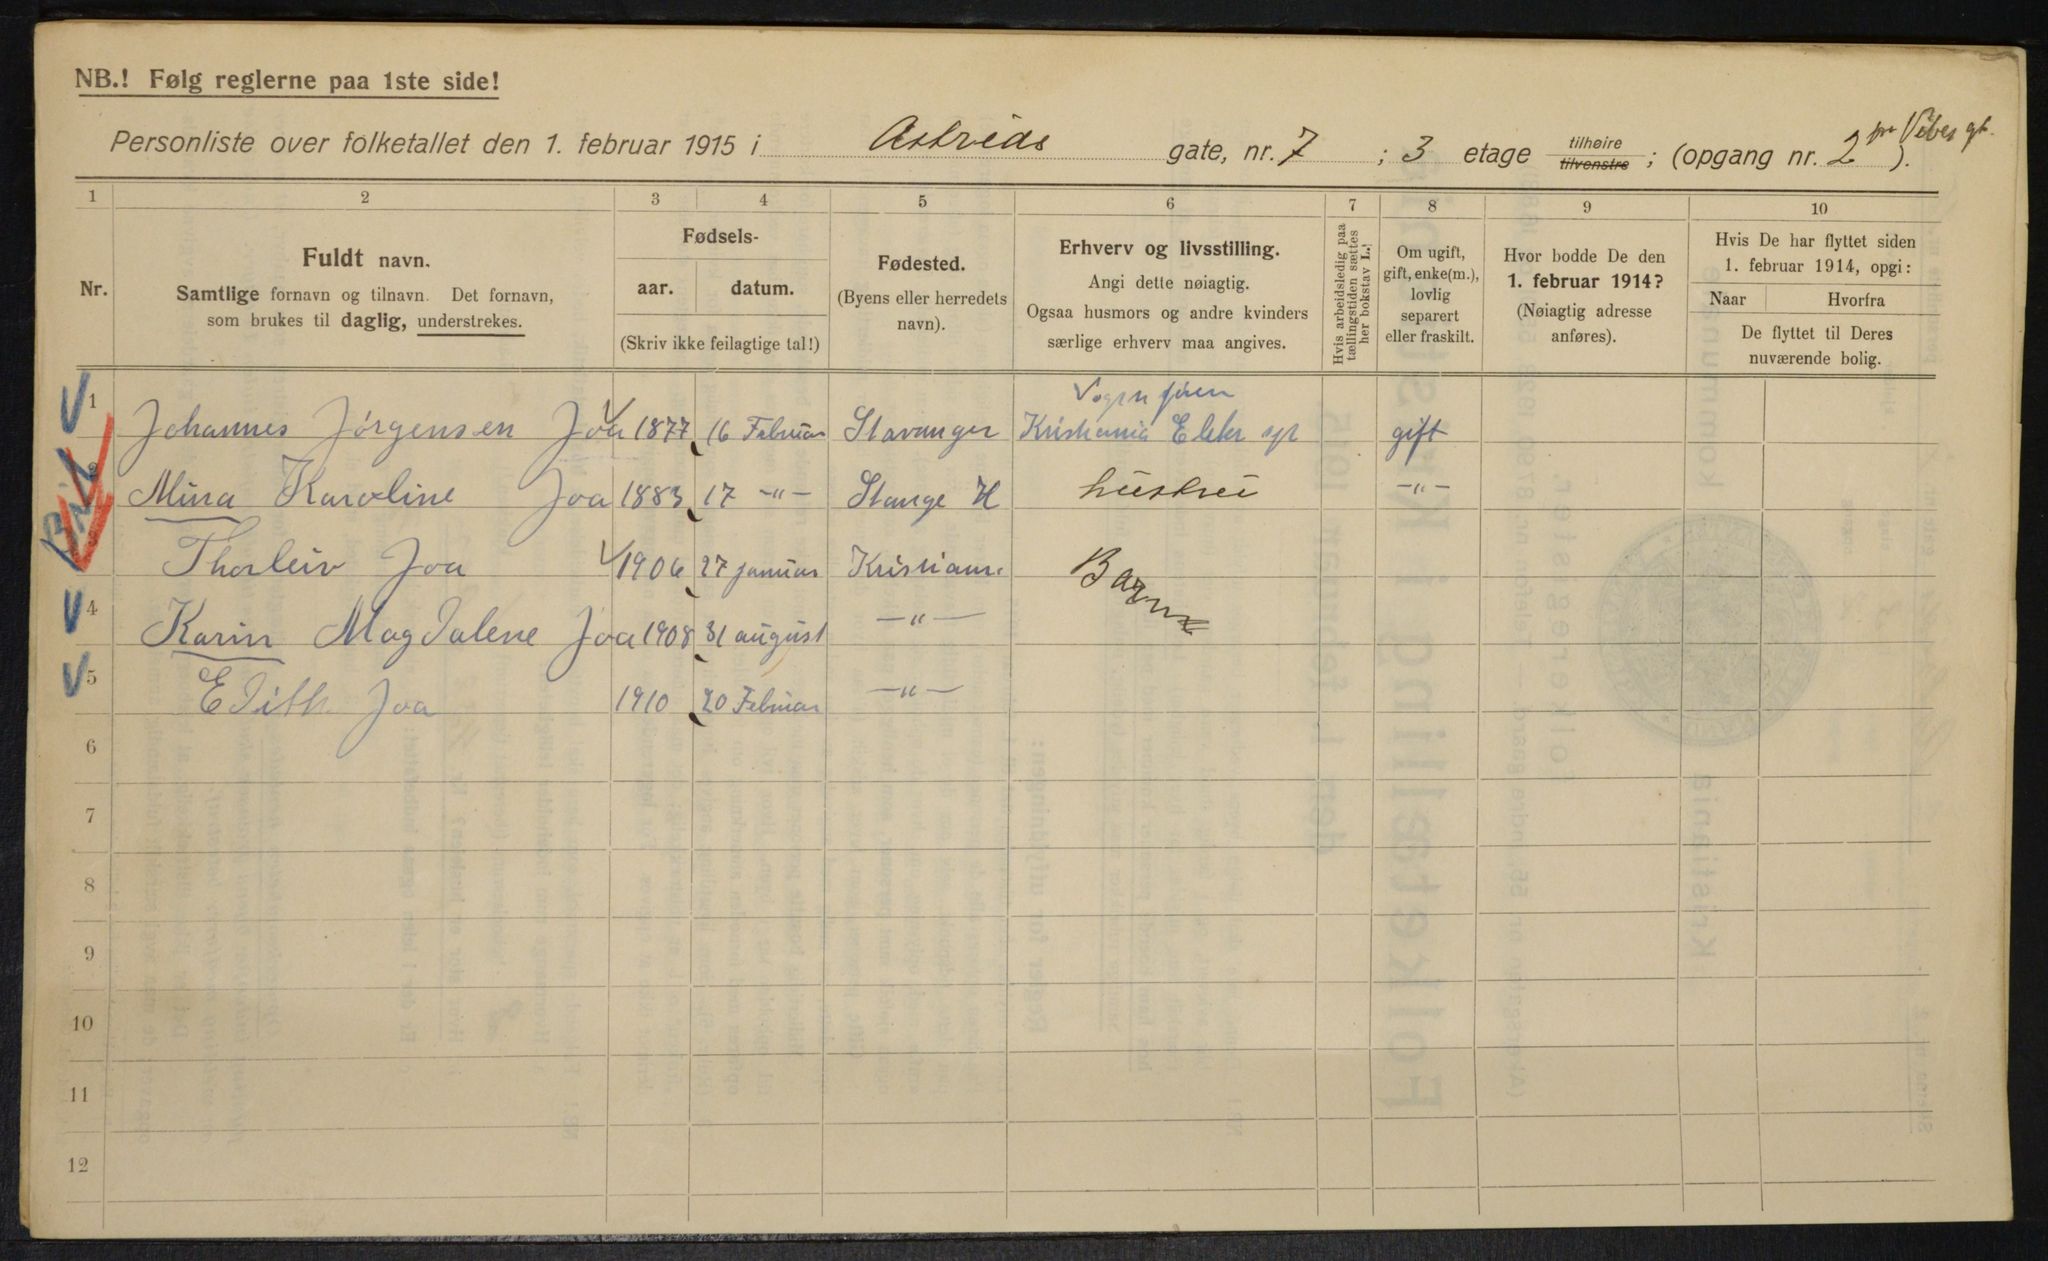 NB.! Følg reglerne paa 1ste side!
Personliste over folketallet den 1. februar 1915 i Astrids gate, nr. 7 ; 3 etage tilhøire tilvenstre ; (opgang nr. 2 ).
1 2 3 4 5 6 7 8 9 10
Nr.
Fuldt navn.
Samtlige fornavn og tilnavn. Det fornavn,
som brukes til daglig, understrekes.
Fødsels-
aar. datum.
(Skriv ikke feilagtige tal!)
Fødested.
(Byens eller herredets
navn).
Erhverv og livsstilling.
Angi dette nøiagtig.
Ogsaa husmors og andre kvinders
særlige erhverv maa angives.
Hvis arbeidsledig paa
tællingstiden sættes
her bokstav L.!
Om ugift,
gift, enke(m.),
lovlig
separert
eller fraskilt.
Hvor bodde De den
1. februar 1914?
(Nøiagtig adresse
anføres).
Hvis De har flyttet siden
1. februar 1914, opgi:
Naar Hvorfra
De flyttet til Deres
nuværende bolig.
Vognfører
1 Johannes Jørgensen Joa 1877 16 Februar Stavanger Kristiania Elektr spr gift
2 Mina Karoline Joa 1883 17 -"- Stange H hustru -"-
Thorleiv Joa 1906 27 januar Kristiania Barn
4 Karin Magdalene Joa 1908 31 august -"-
5 Edith Joa 1910 20 Februar -"-
6
7
8
9
10
11
12